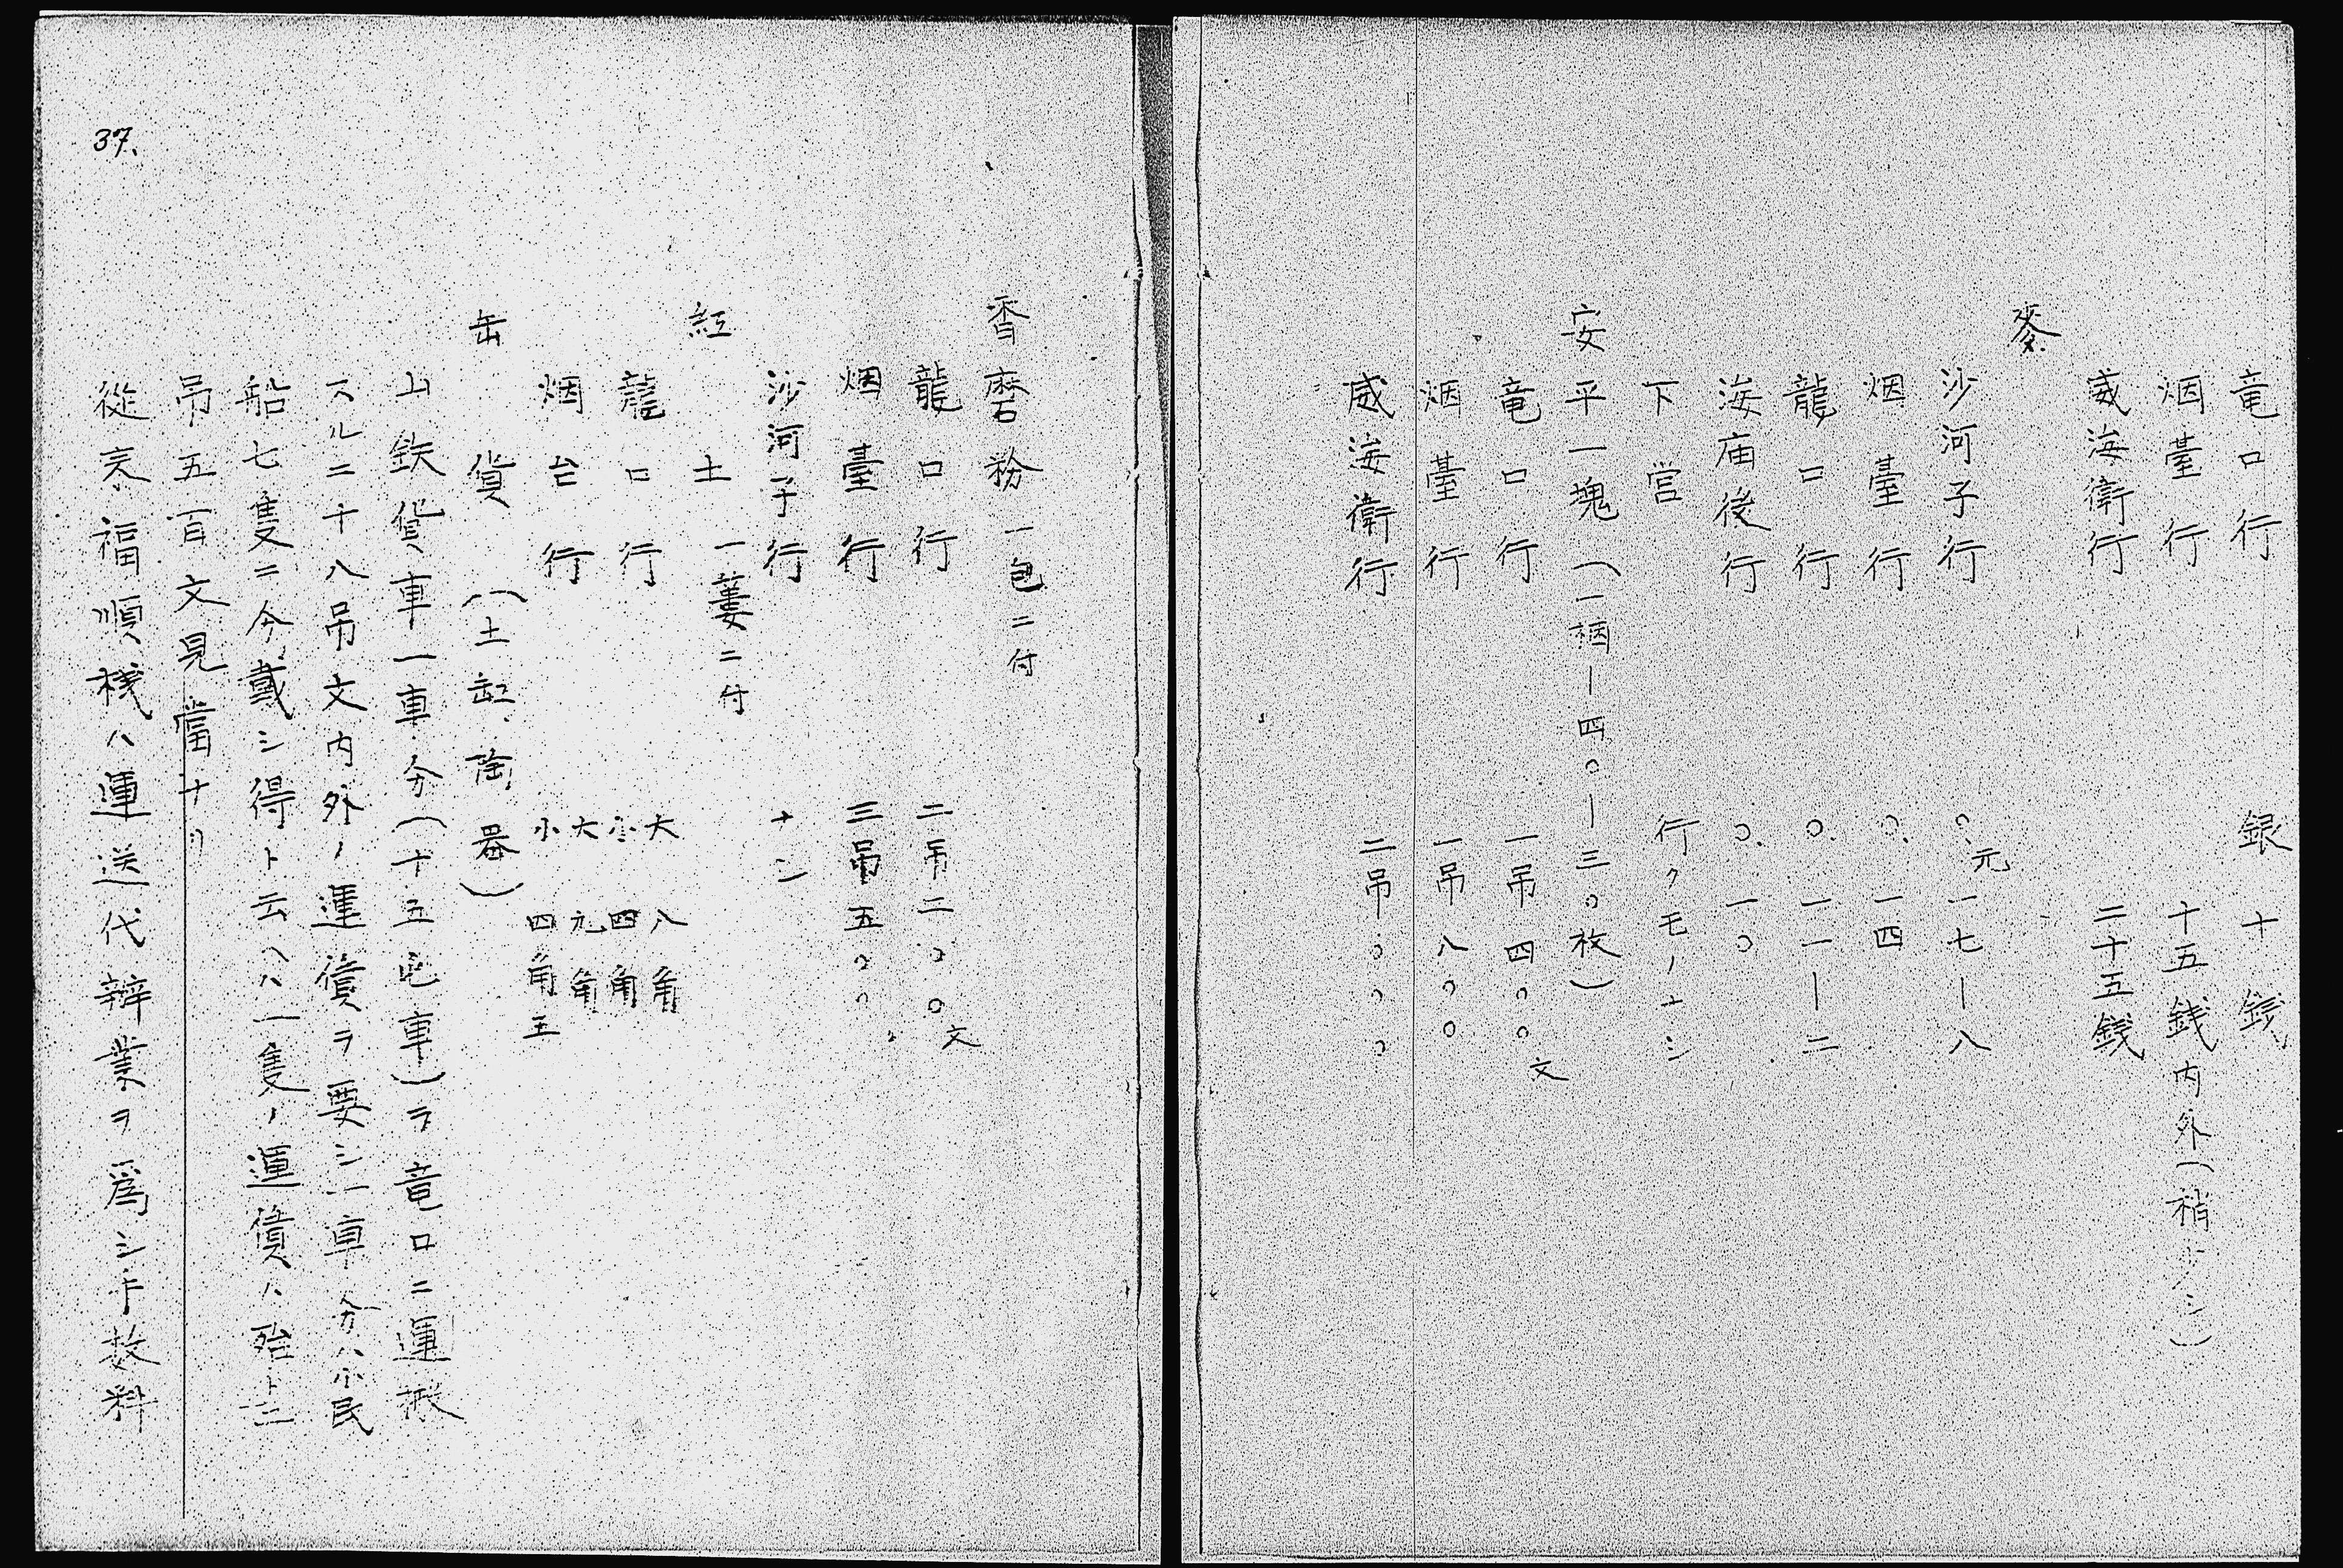 竜口行 銀十銭
烟臺行 十五銭内外(稍少シ)
威海衛行 二十五銭
麥
沙河子行 〇、元一七—八
烟臺行 〇、一四
龍口行 〇、一一—二
海庙後行 〇、一〇
下営 行クモノナシ
安平一塊(一梱—四〇—三〇枚)
竜口行 一吊四〇〇文
烟臺行 一吊八〇〇
威海衛行 二吊〇〇〇
香磨粉一包ニ付
龍口行 二吊二〇〇文
烟臺行 三吊五〇〇
沙河子行 ナシ
紅土 一蔞ニ付
龍口行 大 八角 小 四角
烟台行 大 元角 小 四角五
缶貨(土缸、陶器)
山鉄貨車一車分(十五屯車)ヲ竜口ニ運搬
スル二十八吊文内外ノ運債ヲ要シ一車分ハ小民
船七隻ニ分戴シ得ト云ヘハ一隻ノ運債ハ殆ト二
吊五百文見當ナリ
從来福順桟ハ運送代辨業ヲ爲シ手数料
37.